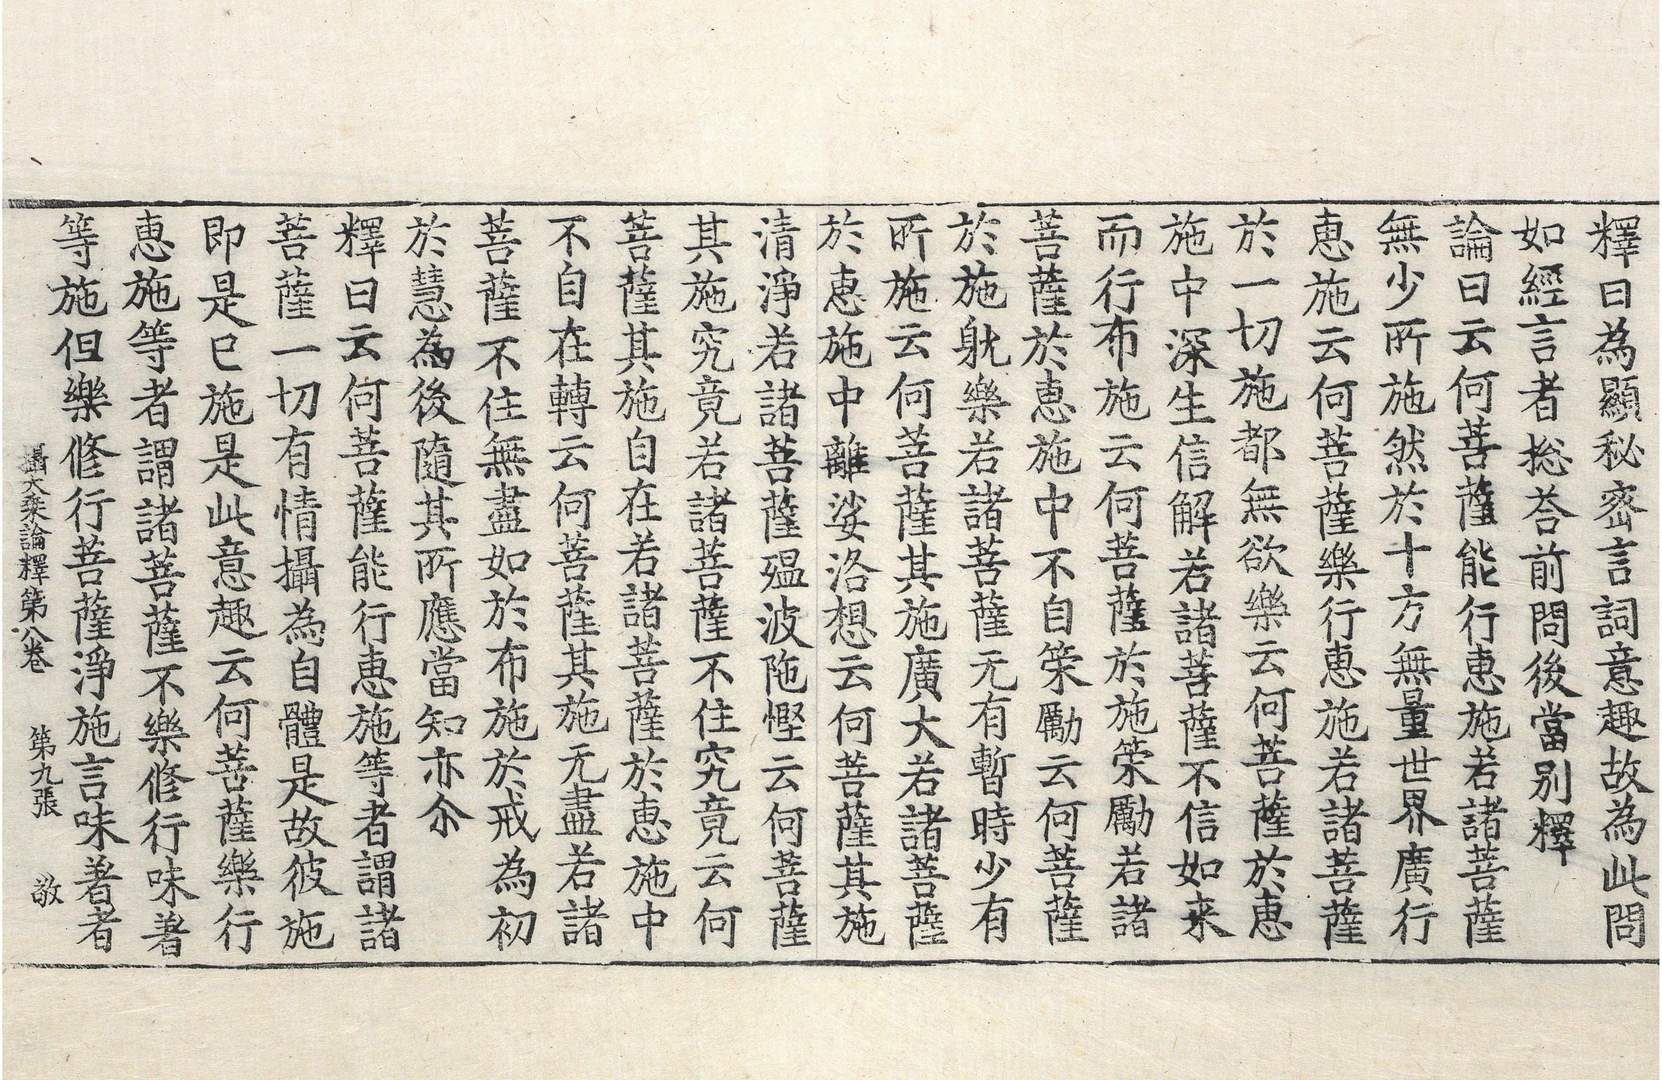 釋曰為顯秘密言詞意趣故為此問
如經言者捴荅前問後當別釋
論曰云何菩薩能行惠施若諸菩薩
無少所施然於十方無量世界廣行
惠施云何菩薩樂行惠施若諸菩薩
於一切施都無欲樂云何菩薩於惠
施中深生信解若諸菩薩不信如来
而行布施云何菩薩於施策勵若諸
菩薩於惠施中不自策勵云何菩薩
於施躭樂若諸菩薩无有暫時少有
所施云何菩薩其施廣大若諸菩薩
於惠施中離娑洛想云何菩薩其施
清淨若諸菩薩殟波陁慳云何菩薩
其施究竟若諸菩薩不住究竟云何
菩薩其施自在若諸菩薩於惠施中
不自在轉云何菩薩其施无盡若諸
菩薩不住無盡如於布施於戒為初
於慧為後隨其所應當知亦尒
釋曰云何菩薩能行惠施等者謂諸
菩薩一切有情攝為自體是故彼施
即是已施是此意趣云何菩薩樂行
惠施等者謂諸菩薩不樂修行味著
等施但樂修行菩薩淨施言味著者
攝大乘論釋第八卷 第九張 敬